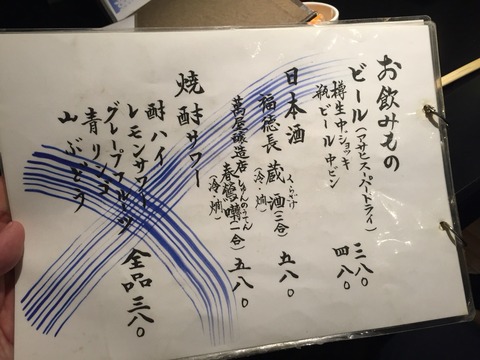 お飲みもの
ビール(アサヒスーパードライ)
樽生中ジョッキ 三八〇
瓶ビール 中ビン 四八〇
日本酒
福徳長 蔵酒(二合) 五八〇
くら
(冷・燗)
萬屋醸造店 春鶯囀(一合) 五八〇
しゅんのうてん
(冷・燗)
焼酎サワー
酎ハイ
レモンサワー
グレープフルーツ 全品三八〇
青リンゴ
山ぶどう